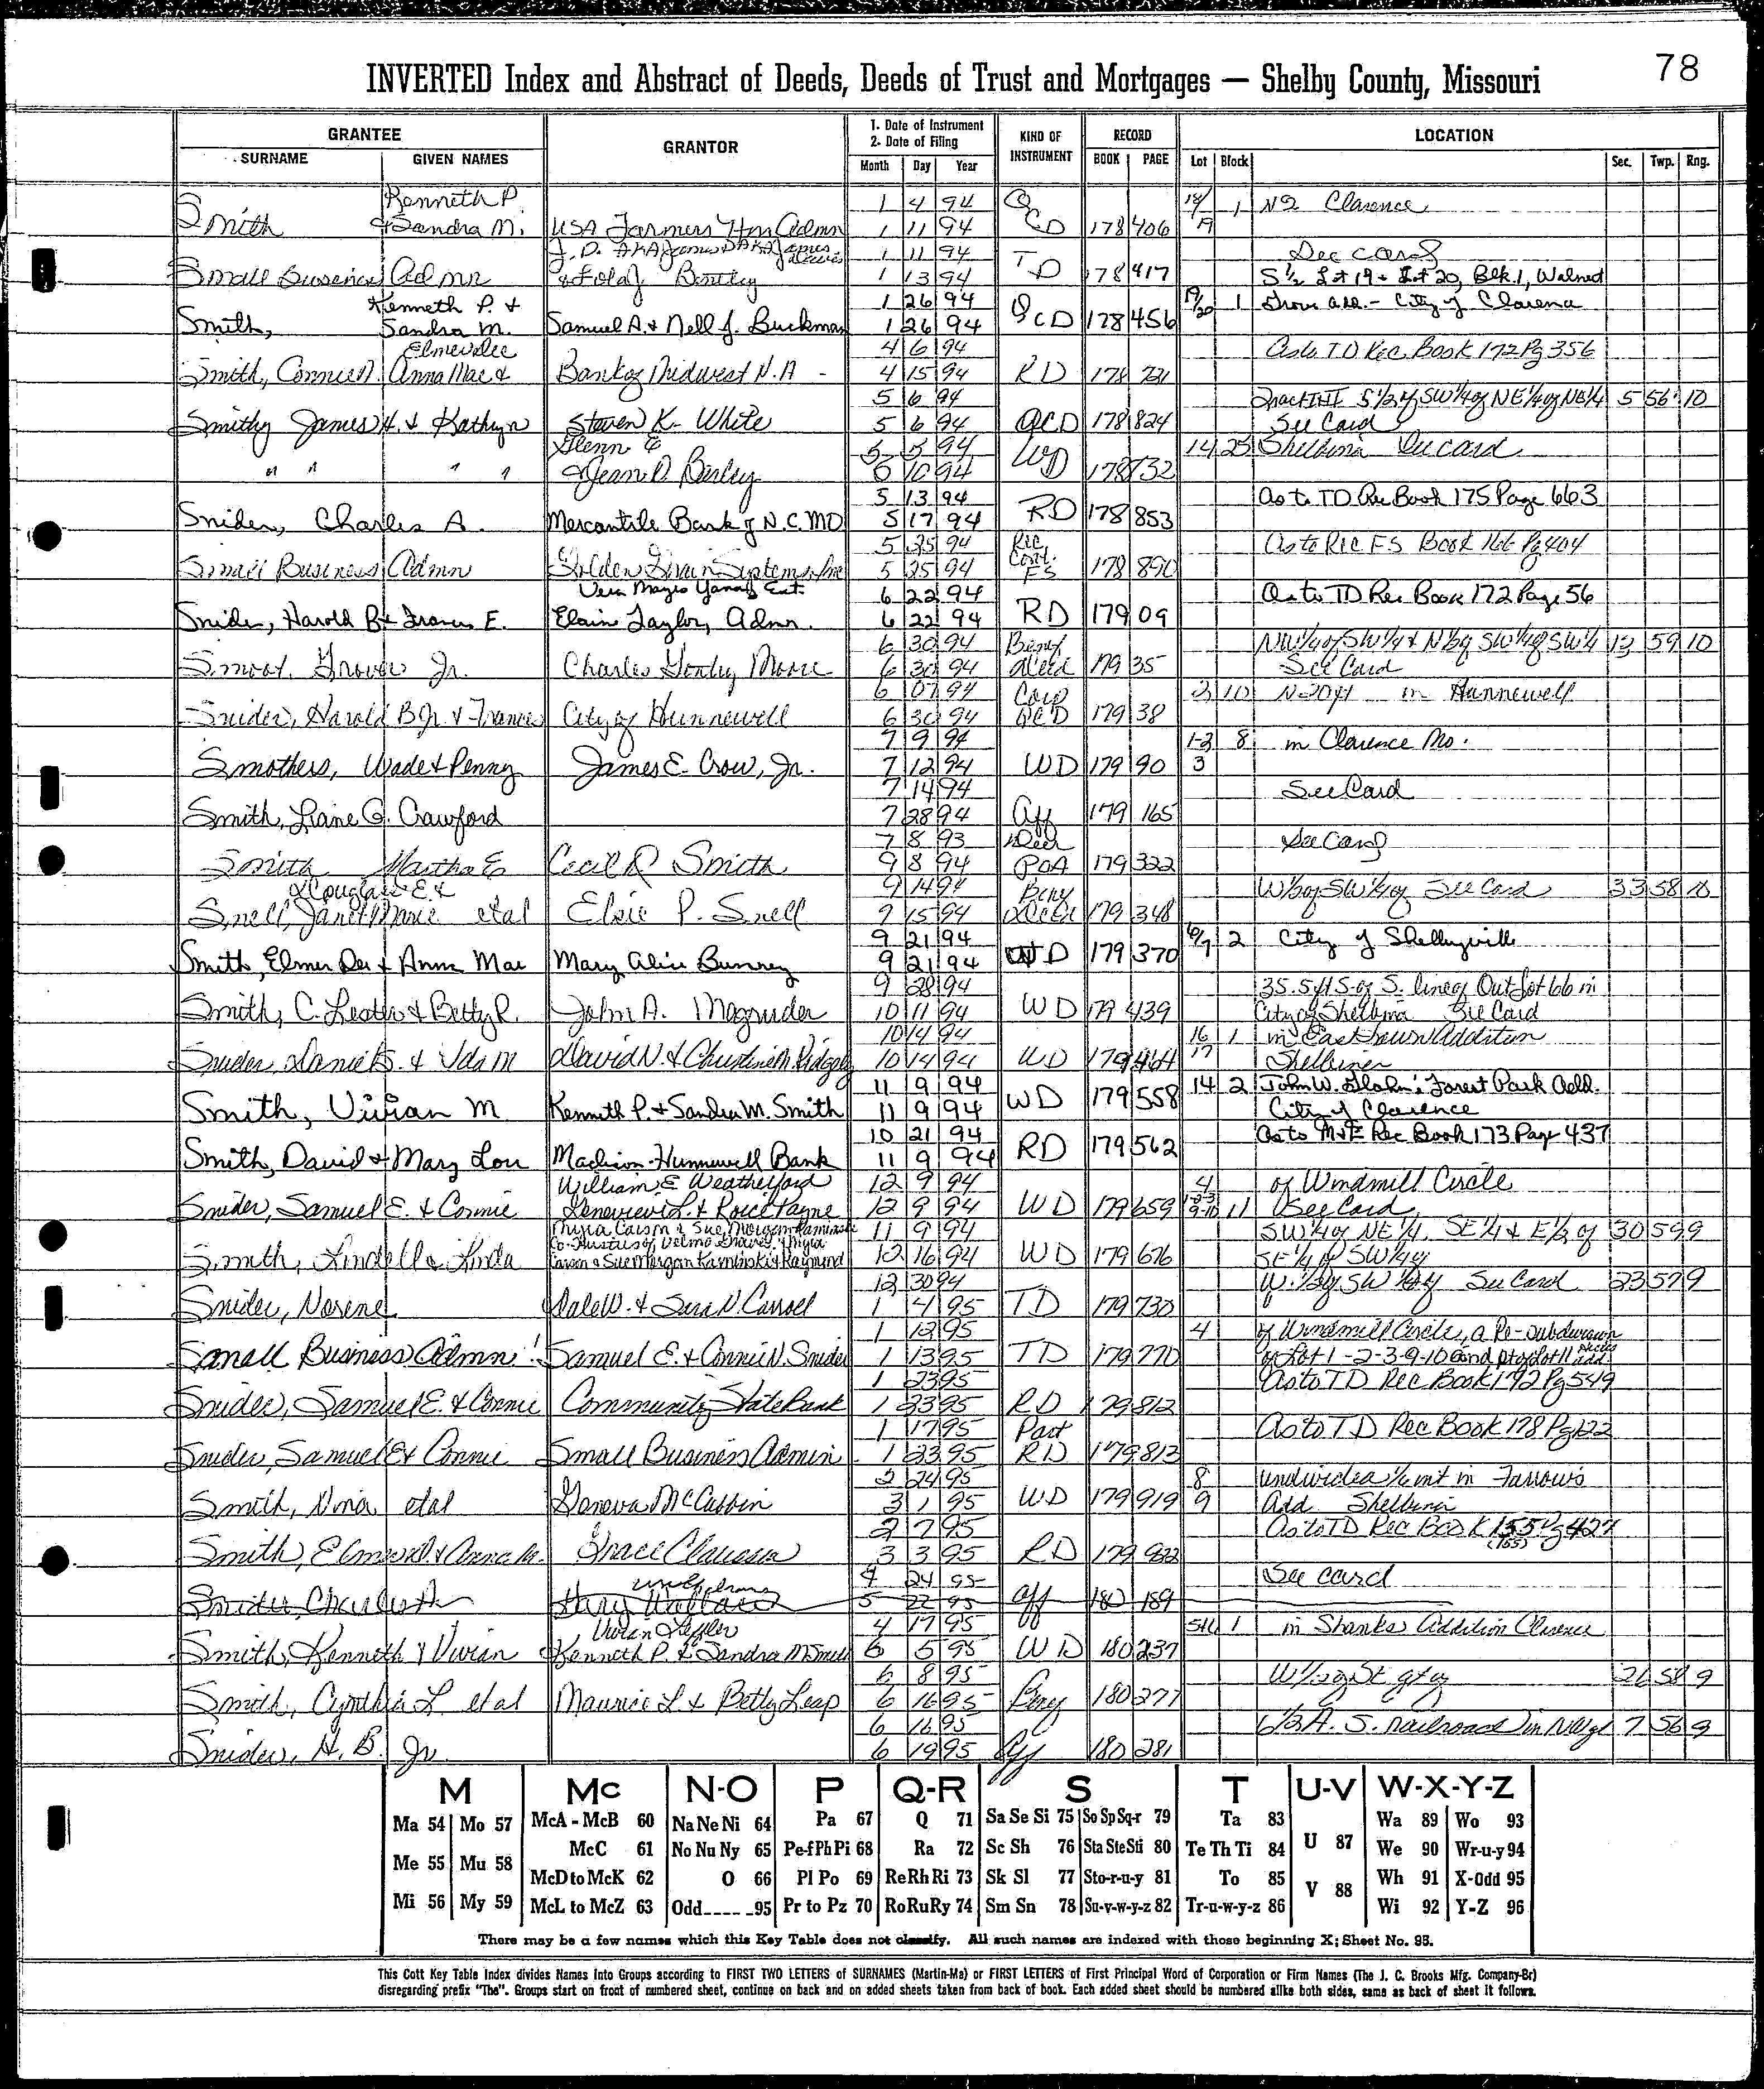 78
INVERTED Index and Abstract of Deeds, Deeds of Trust and Mortgages — Shelby County, Missouri
GRANTEE GRANTOR 1. Date of Instrument 2. Date of Filing KIND OF INSTRUMENT RECORD LOCATION
SURNAME GIVEN NAMES Month Day Year BOOK PAGE Lot Block Sec. Twp. Rng.
Kenneth P. 1 4 94 Q 18/ 1 N2 Clarence
Smith & Sandra M. USA Farmers Hm Admn 1 11 94 CD 178 406 19
J. D. AKA James D AKA James 1 11 94 TD See card
Small Business Admr Bentley 1 13 94 178 417 S 1/2 Lot 19 & Lot 20, Blk. 1, Walnut
Kenneth P. & 1 26 94 QCD 19/20 1 Grove add. - City of Clarence
Smith, Sandra M. Samuel A. & Nell J. Buckman 1 26 94 178 456
Elmer Lee 4 6 94 As to TD Rec Book 172 Pg 356
Smith, Connie D. Anna Mae & Bank of Midwest N.A - 4 15 94 RD 178 721
5 6 94 Tract III S 1/2 of SW 1/4 of NE 1/4 of NE 1/4 5 56 10
Smithy James H. & Kathryn Steven K. White 5 6 94 QCD 178 824 See Card
Glenn E 5 5 94 WD 14 25 Shelbina See card
" " " " & Jean D. 10 94
5 13 94 As to TD Rec Book 175 Page 663
Snider, Charles A. Mercantile Bank of N.C. MO 5 17 94 RD 178 853
5 25 94 Rec As to Rec FS Book 166 Pg 404
Small Business Admn Golden Grain Systems Inc 5 25 94 Cont. FS 178 890
6 22 94 As to TD Rec Book 172 Page 56
Snider, Harold B & Frances E. Elaine Taylor, Admr. 6 22 94 RD 179 09
6 30 94 Benef NW 1/4 of SW 1/4 & N 1/2 of SW 1/4 of SW 1/4 13 59 10
Smoot, Grover Jr. Charles Henley Moore 6 30 94 Deed 179 35 See Card
6 07 94 Corp 2 10 N 20 ft in Hunnewell
Snider, Harold B Jr. & Frances City of Hunnewell 6 30 94 QCD 179 38
7 9 94 1-2 8 in Clarence Mo.
Smothers, Wade & Penny James E. Crow, Jr. 7 12 94 WD 179 90 3
7 14 94 See Card
Smith, Liane G. Crawford 7 28 94 Aff 179 165
7 8 93 See Card
Smith Martha E Cecil R Smith 9 8 94 POA 179 322
& Douglas E. & 9 14 94 Beny W 1/2 of SW 1/4 of See Card 33 58 10
Snell, Janet Marie etal Elsie P. Snell 9 15 94 Deed 179 348
9 21 94 6/7 2 City of Shelbyville
Smith, Elmer Dee & Anna Mae Mary Alice 9 21 94 WD 179 370
9 28 94 35.5 ft S. of S. line of Out Lot 66 in
Smith, C. Lester & Betty R. John A. Magruder 10 11 94 WD 179 439 City of Shelbina See Card
10 14 94 16 1 in East Lawn Addition
Snider, Daniel S. & Ida M David N. & Christine M. Ridgely 10 14 94 WD 179 464 17 Shelbina
11 9 94 14 2 John W. Glahn's Forest Park Add.
Smith, Vivian M Kenneth P. & Sandra M. Smith 11 9 94 WD 179 558 City of Clarence
10 21 94 As to MtE Rec Book 173 Page 437
Smith, David & Mary Lou Madison-Hunnewell Bank 11 9 94 RD 179 562
William E Weatherford 12 9 94 4 of Windmill Circle
Snider, Samuel E. & Connie Genevieve L. & Royce Payne 12 9 94 WD 179 659 1-2-3 9-10 11 See Card
Thyra Carson & Sue Morgan Kaminski 11 9 94 SW 1/4 of NE 1/4, SE 1/4 & E 1/2 of 30 59 9
Co-Trustees of Velma Graves, Thyra
Smith, Lindell & Linda Carson & Sue Morgan Kaminski & Raymond 12 16 94 WD 179 676 SE 1/4 of SW 1/4
12 30 94 W. 1/2 of SW 1/4 of See Card 23 57 9
Snider, Norene Dale W. & Sara N. Carroll 1 4 95 TD 179 730
1 13 95 4 of Windmill Circle, a Re-subdivision
Small Business Admn. Samuel E. & Connie N. Snider 1 13 95 TD 179 770 of Lot 1-2-3-9-10 and pt of Lot 11 add
1 23 95 As to TD Rec Book 172 Pg 549
Snider, Samuel E. & Connie Community State Bank 1 23 95 RD 179 812
1 17 95 Part As to TD Rec Book 178 Pg 122
Snider, Samuel E & Connie Small Business Admin 1 23 95 RD 179 813
2 24 95 8 undivided 1/6 int in Farrow's
Smith, Nina etal Geneva McCubbin 3 1 95 WD 179 919 9 Add. Shelbina
2 7 95 As to TD Rec Book 155 Pg 427
(155)
Smith, Elmer D. & Anna M. Grace Clausen 3 3 95 RD 179 922
4 24 95 See card
Snider, Charles A Gary Wallace 5 22 95 Aff 180 189
Vivian Leffler 4 17 95 5+6 1 in Shanks Addition Clarence
Smith, Kenneth & Vivian Kenneth P. & Sandra M Smith 6 5 95 WD 180 237
6 8 95 26 58 9
Smith, Cynthia L. etal Maurice L. & Betty Leap 6 16 95 Beny 180 277
6 16 95 6 1/3 A. S. railroad in NW 1/4 7 56 9
Snider, H. B. Jr. 6 19 95 Aff 180 281
M Mc N-O P Q-R S T U-V W-X-Y-Z
Ma 54 Mo 57 McA - McB 60 Na Ne Ni 64 Pa 67 Q 71 Sa Se Si 75 So Sp Sq-r 79 Ta 83 U 87 Wa 89 Wo 93
Me 55 Mu 58 McC 61 No Nu Ny 65 Pe-f Ph Pi 68 Ra 72 Sc Sh 76 Sta Ste Sti 80 Te Th Ti 84 V 88 We 90 Wr-u-y 94
McD to McK 62 O 66 Pl Po 69 Re Rh Ri 73 Sk Sl 77 Sto-r-u-y 81 To 85 Wh 91 X-Odd 95
Mi 56 My 59 McL to McZ 63 Odd 95 Pr to Pz 70 Ro Ru Ry 74 Sm Sn 78 Su-v-w-y-z 82 Tr-u-w-y-z 86 Wi 92 Y-Z 96
There may be a few names which this Key Table does not classify. All such names are indexed with those beginning X; Sheet No. 95.
This Cott Key Table Index divides Names Into Groups according to FIRST TWO LETTERS of SURNAMES (Martin-Ma) or FIRST LETTERS of First Principal Word of Corporation or Firm Names (The J. C. Brooks Mfg. Company-Br)
disregarding prefix "The". Groups start on front of numbered sheet, continue on back and on added sheets taken from back of book. Each added sheet should be numbered alike both sides, same as back of sheet it follows.